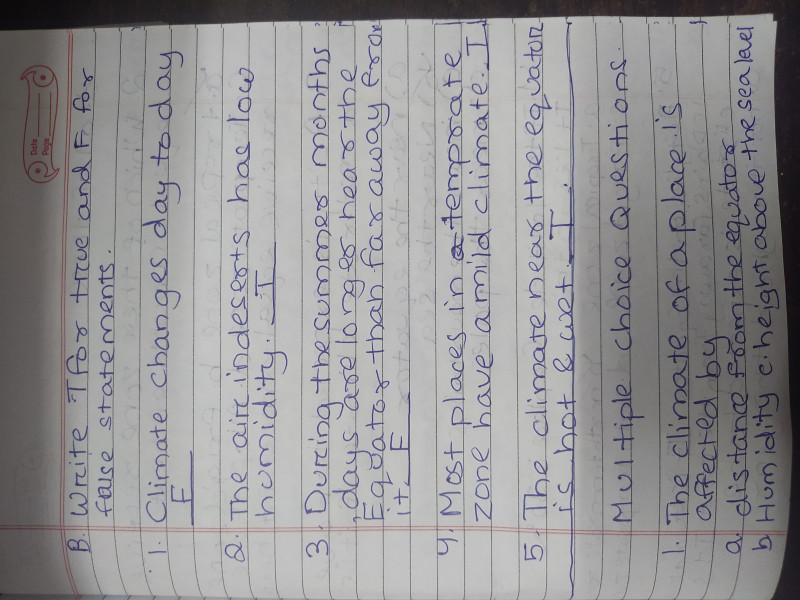 Date
Page
B. Write T for true and F for
false statements.
1. Climate changes day to day
F
2. The air in deserts has low
humidity. T
3. During the summer months
days are longer near the
Equator than far away from
it. F
4. Most places in a temprate
zone have a mild climate. T
5. The climate near the equator
is hot & wet. T.
Multiple choice Questions.
1. The climate of a place is
affected by
a. distance from the equator
b. Humidity c. height above the sea level